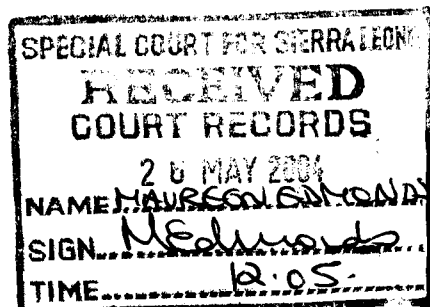 SPECIAL COURT FOR SIERRA LEONE
RECEIVED
COURT RECORDS
MAY 2004
NAME MAUREEN EDMONDS
SIGN MEdmonds
TIME 12.05.